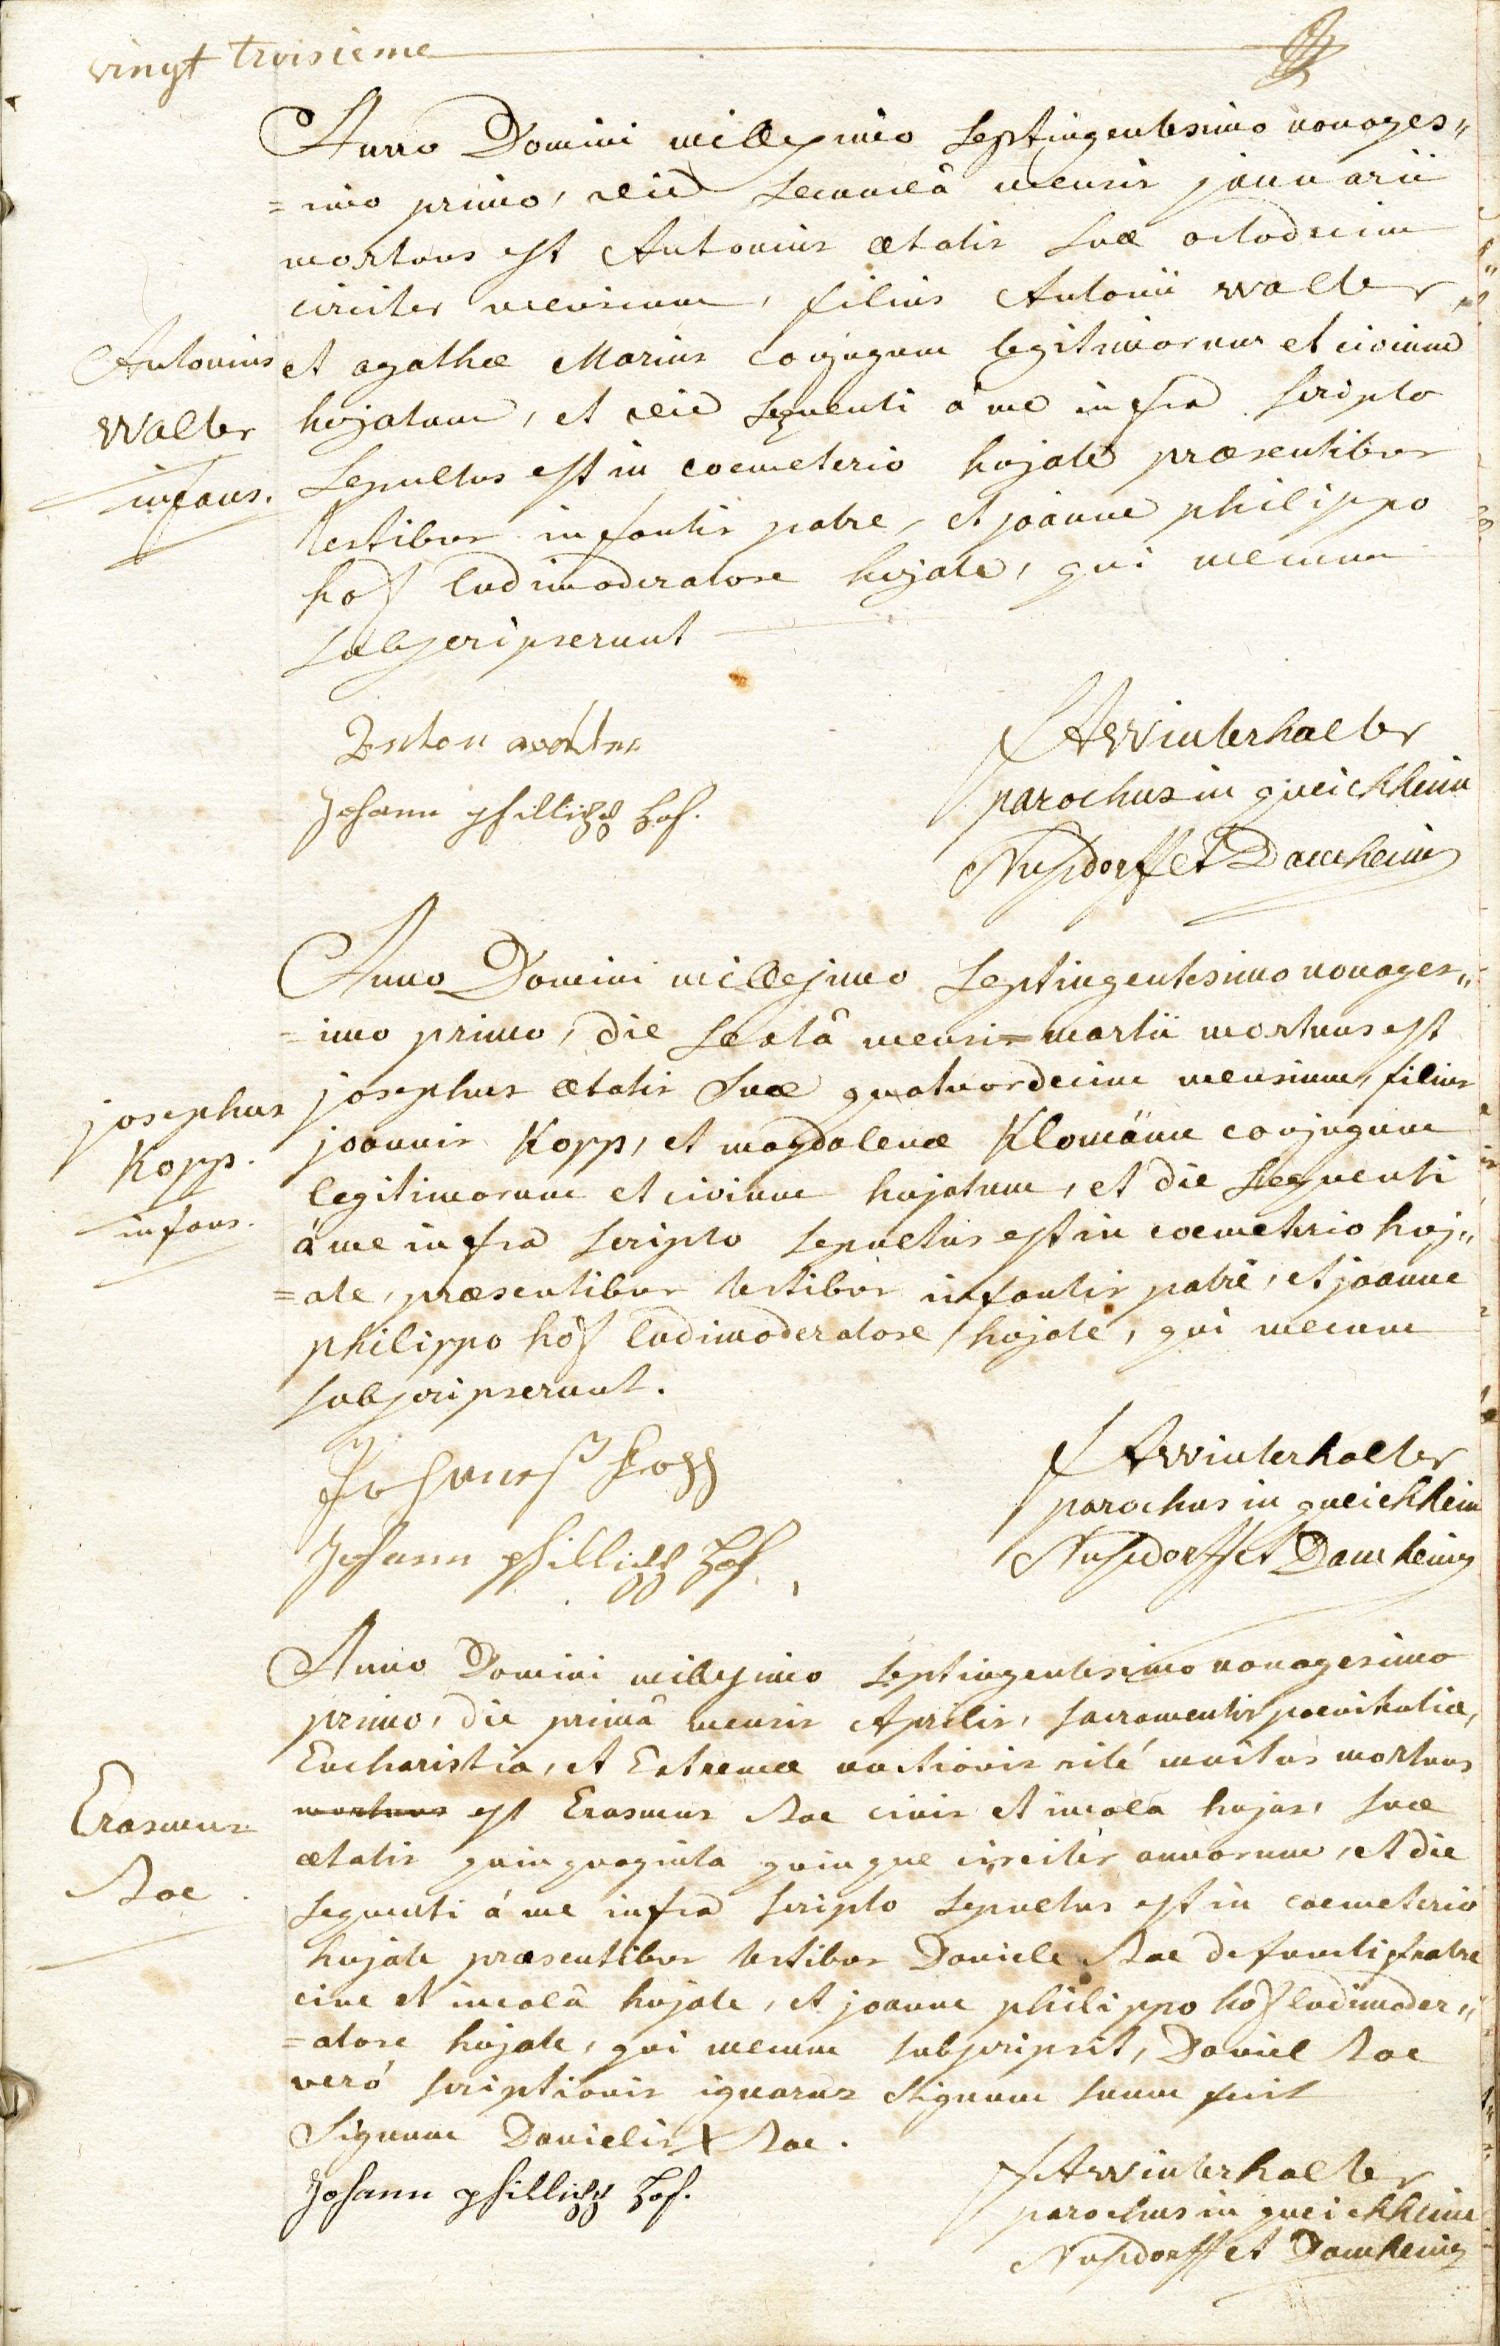 vingt troisieme
Anno Domini millesimo septingentesimo nonages„
=imo primo, die secundâ mensis januarii
mortuus est Antonius ætatis suæ octodecim
circiter mensium, filius Antonii Walter
et agathæ Marius conjugum legitimorum et civium
hujatum, et die sequenti á me infra scripto
sepultus est in coemeterio hujate præsentibus
testibus infantis patre, et joanne philippo
hof ludimoderatore hujate, qui mecum
subscripserunt
Antonius
Walter
infans.
Anton
Johann phillipp Hof.
FAWinterhalter
parochus in queichheim
Nusdorff et Damheim
Anno Domini millesimo septingentesimo nonages„
=imo primo, die sextâ mensis martii mortuus est
josephus ætatis suæ quatuordecim mensium, filius
joannis Kopp, et magdalenæ Klomänn conjugum
legitimorum et civium hujatum, et die sequenti
á me infra scripto sepultus est in coemeterio huj„
=ate, præsentibus testibus infantis patre, et joanne
philippo hof ludimoderatore hujate, qui mecum
subscripserunt.
josephus
Kopp.
infans.
Johannes Kopp
Johann phillipp Hof.
FAWinterhalter
parochus in queichheim
Nusdorff et Damheim
Anno Domini millesimo septingentesimo nonagesimo
primo, die primâ mensis Aprilis, sacramentis poenitentiæ,
Eucharistia, et Extremæ unctionis rité munitus mortuus
mortuus est Erasmus Roe civis et incola hujas, suæ
ætatis quinquaginta quinque circiter annorum, et die
sequenti á me infra scripto sepultus est in coemeterio
hujate præsentibus testibus Daniele Roe defuncti fratre
cive et incolâ hujate, et joanne philippo hof ludimoder„
=atore hujate, qui mecum subscripsit, Daniel Roe
veró scriptionis ignarus signum suum fecit
Erasmus
Roe.
Signum Danielis X Roe.
Johann phillipp Hof.
FAWinterhalter
parochus in queichheim
Nusdorff et Damheim